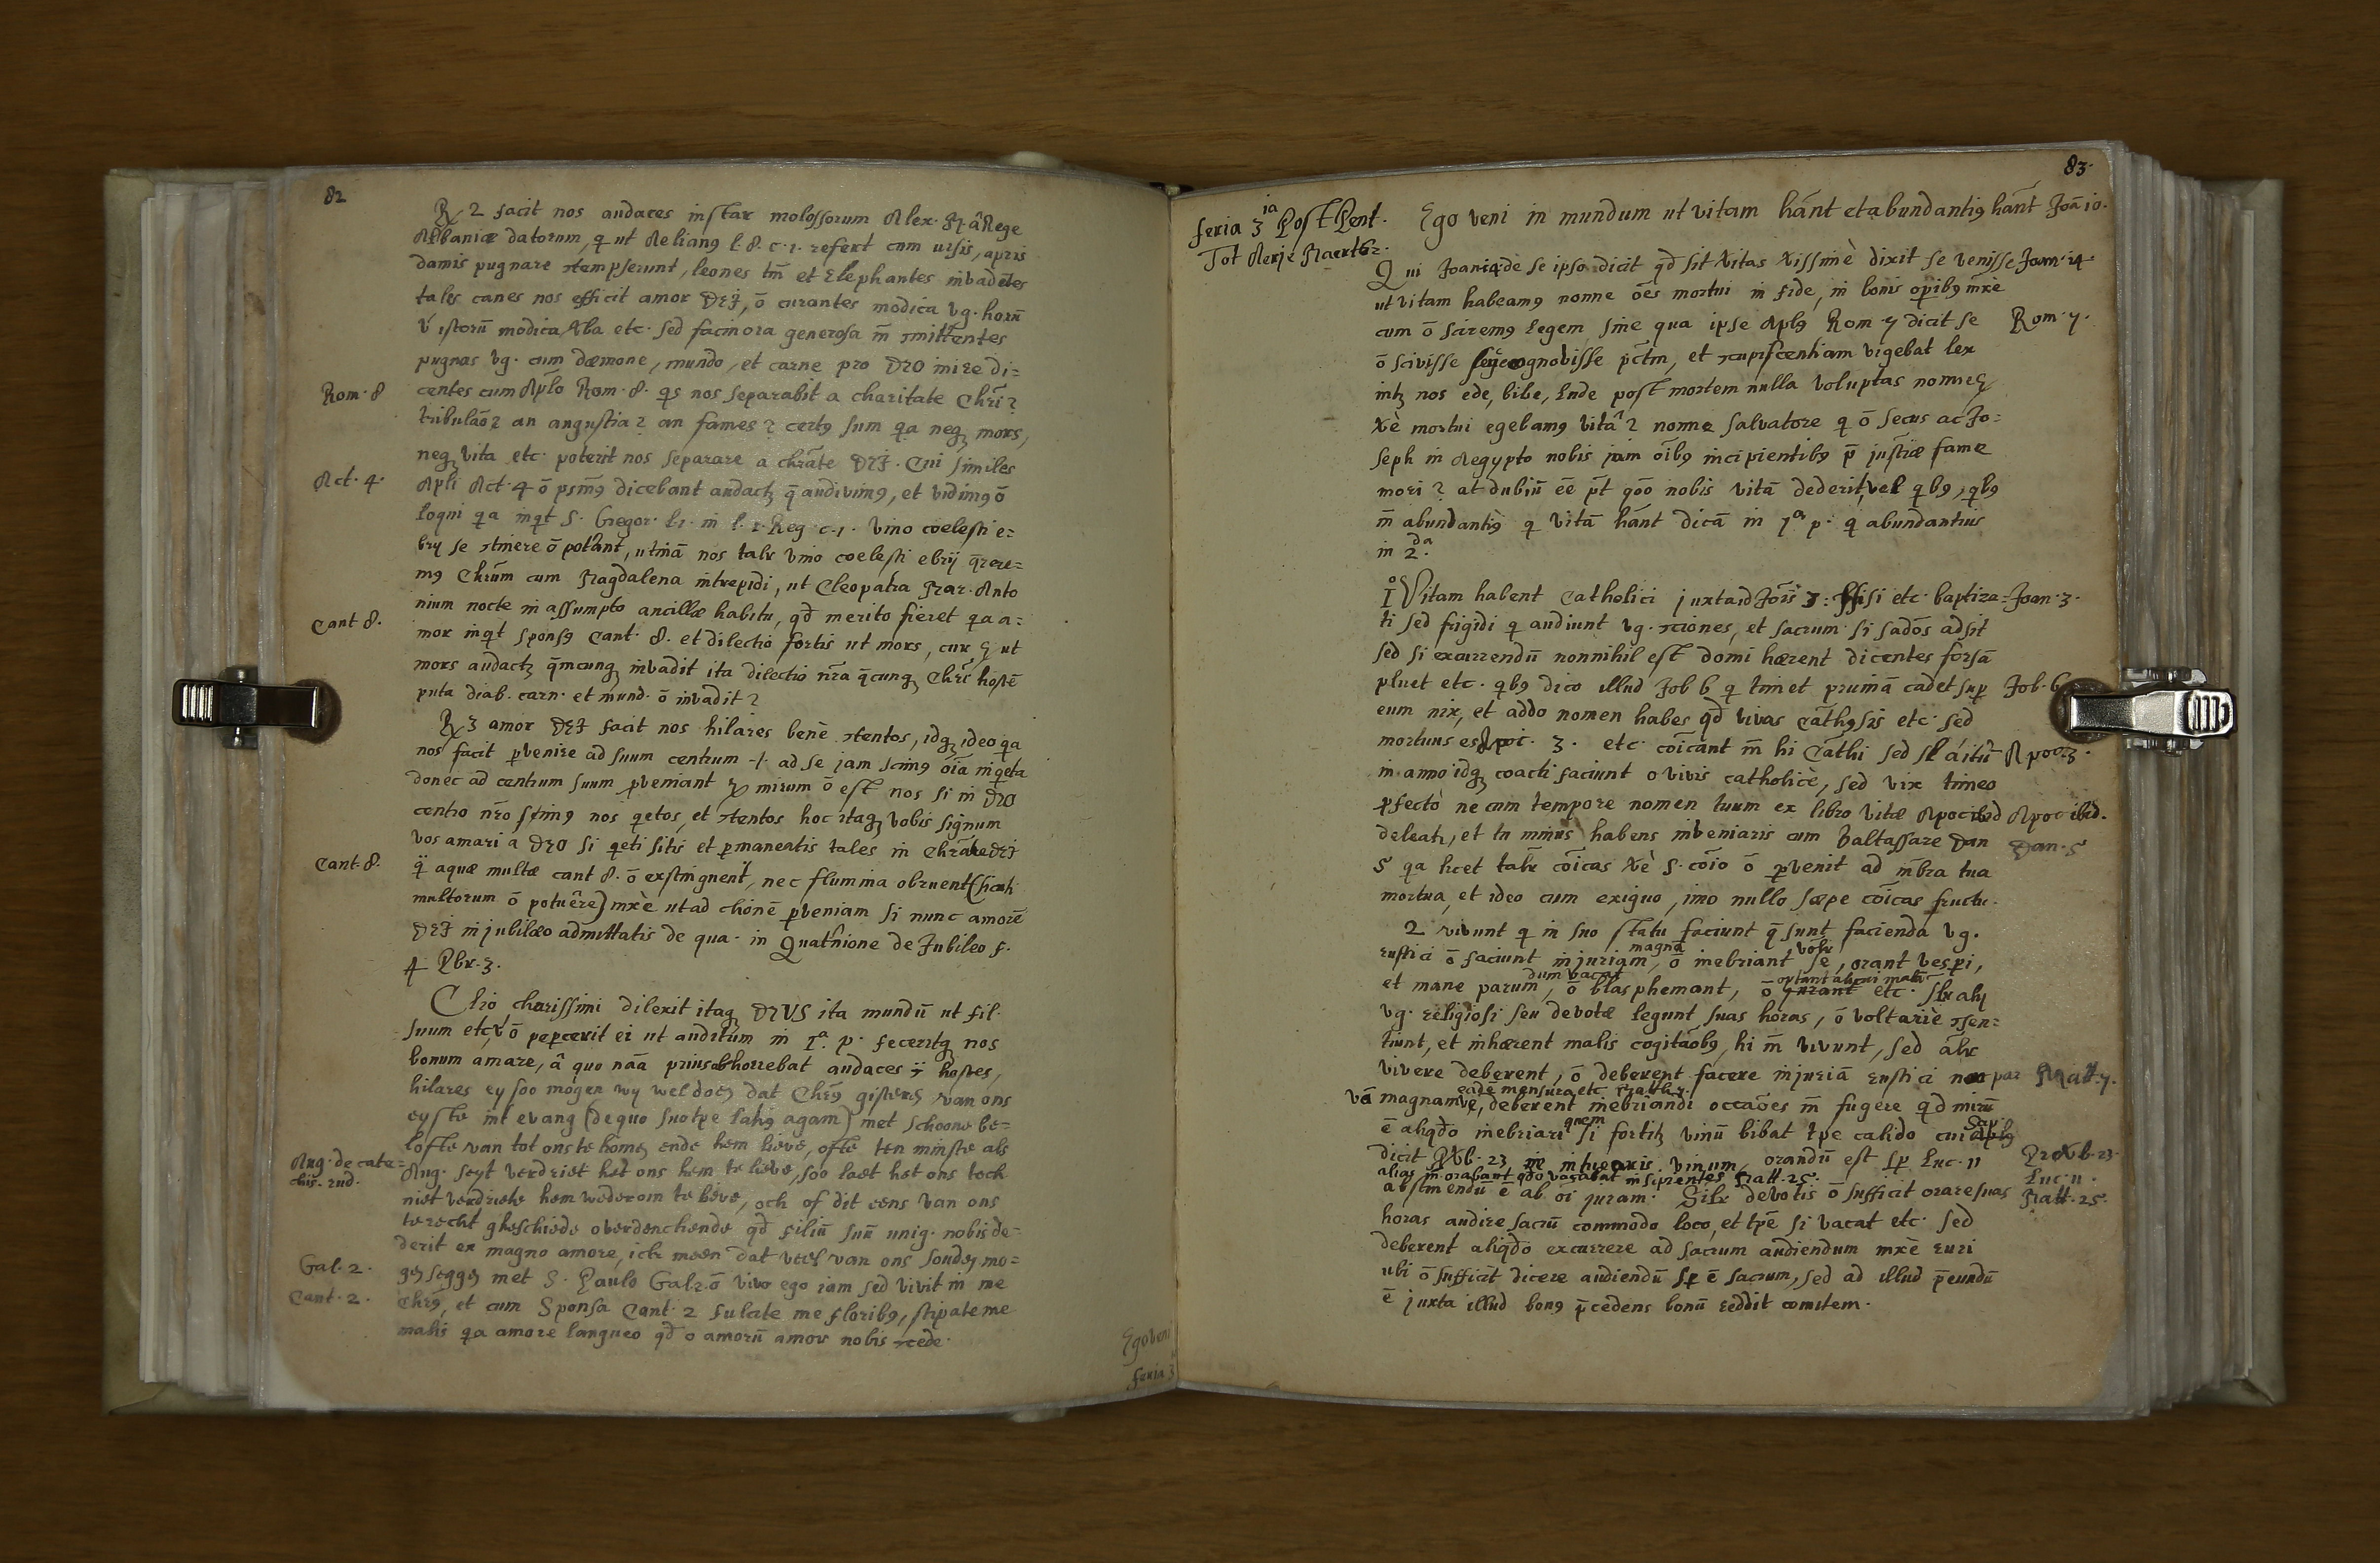 82
R 2 facit nos audaces instar molossorum Alex. M â Rege
Albaniæ datorum, q ut Aelian9 l. 8. c. 1. refert cum ursis, apris
damis pugnare tempserunt, leones tm̄ et Elephantes invadētes
tales canes nos efficit amor DEI, ō curantes modica vg. horū
v̄ istorū modica vba etc. sed facinora generosa m̄
pugnas vg. cum dæmone, mundo, et carne pro DEO inire di=
Rom. 8
centes cum Aplo Rom. 8. qs nos separabit a charitate Chri?
tribulaō? an angustia? an fames? cert9 sum qa neq mors,
neq vita etc. poterit nos separare a chrāte DEI. Cui similes
Act. 4.
Apli Act. 4 ō psm9 dicebant audact q̄ audivim9, et vidim9 ō
loqni qa inqt S. Gregor. l. 1. in l. 1. Reg. c. 1. vino coelesti e=
brij se tinere ō potānt, utinā nos talr vino coelesti ebrij q̄rere=
m9 Chrūm cum Magdalena intrepidi, ut Cleopatra Mar. Anto
nium nocte in assumpto ancillæ habitu, qd merito fieret qa a=
Cant 8.
mor inqt spons9 Cant. 8. et dilectio fortis ut mors, cur g ut
mors audact q̄mcunq invadit ita dilectio nra q̄cunq Chrī hostē
puta diab. carn. et mund. ō invadit?
R 3 amor DEI facit nos hilares benè tentos, idq ideo qa
nos facit pvenire ad suum centrum .i. ad se jam scim9 oīa inqeta
donec ad centrum suum pveniant mirum ō est nos si in DEO
centro nro sim9 nos qetos, et tentos hoc itaq vobis signum
vos amari a DEO si qeti sitis et pmaneatis tales in Chrāte DEI
Cant. 8.
q aquæ multæ cant 8. ō exstingnent, nec flumina obruent (sicuti
multorum ō potuêre) mxè ut ad pveniam si nunc amorē
DEI in jubilæo admittatis de qua. in Quatnione de Jubileo f.
4 Pbr. 3.
Clio charissimi dilexit itaq DEUS ita mundū ut fil.
suum etc ō pepcerit ei ut auditum in 1a. p. feceritq nos
bonum amare, â quo nāa prius abhorrebat audaces hostes,
hilares ey soo mogen wy wel doen dat Chrs gisteren van ons
eyste int evang (de quo suo tpe lati9 agam) met schoone be=
lofte van tot ons te komen ende hem lieve, ofte ten minste als
Aug. de cate=
chis. rud.
Aug. seyt verdriet het ons hem te lieve, soo laet het ons toch
niet verdriete hem wederom te lieve, och of dit eens van ons
te recht gheschiede overdenckende qd filiū suū unig. nobis de=
derit ex magno amore, ick meen dat veel van ons souden mo=
Gal. 2.
gen seggen met S. Paulo Gal. 2. ō vivo ego iam sed vivit in me
Cant. 2.
Chrs, et cum Sponsa Cant. 2 fulate me florib9, stipate me
malis qa amore langueo qd o amorū amor nobis cede.
Ego veni
feria 3
83.
feria 3ia Post Pent.
Tot Merje Maerter.
Ego veni in mundum ut vitam hānt et abundanti9 hānt Joā 10.
Qui Joan 14 de se ipso dicit qd sit vitas vissimè dixit se venisse Joan. 14.
ut vitam habeam9 nonne oēs mortui in fide, in bonis opib9 mxè
cum ō scirem9 legem sine qua ipse Apls Rom. 7 dicit se Rom. 7.
ō scivisse cognovisse pctm, et cupiscentiam vigebat lex
int nos ede, bibe, lude post mortem nulla voluptas nonne
vè mortui egebam9 vitâ? nonne salvatore q ō secus ac Jo=
seph in Aegypto nobis jam oīb9 incipientib9 p̄ justitiæ fame
mori? at dubiū eē pt qōo nobis vitā dederit, vel qb9, qb9
m̄ abundanti9 q vitā hānt dicā in 1a p. q abundantius
in 2da.
1o Vitam habent Catholici juxta id Joīs 3: nisi etc. baptiza= Joan. 3.
ti sed frigidi q audiunt vg. ciones, et sacrum si sadōs adsit
sed si excurrendū nonnihil est domi hærent dicentes forsā
pluet etc. qb9 dico illud Job 6 q timet pruinā cadet sup Job. 6
eum nix, et addo nomen habes qd vivas Cāthssis etc. sed
mortuus es Apoc. 3. etc. coīcant m̄ hi Cāthi sed Apoc. 3.
in anno idq coacti faciunt o vivis catholicè, sed vix timeo
pfectò ne cum tempore nomen tuum ex libro vitæ Apoc ibid Apoc ibid.
deleat, et tu minus habens inveniaris cum Baltassare Dan Dan. 5
5 qa licet talr coīcas vè S. coīo ō pvenit ad mbra tua
mortua, et ideo cum exiguo, imo nullo sæpe coīcas fructu.
2 vivunt q in suo statu faciunt q̄ sunt facienda vg.
rustici ō faciunt injuriam magnā, ō inebriant se volr, orant vespi,
et mane parum dum vacat, ō blasphemant, ō jurant etc.
vg. religiosi seu devotæ legunt suas horas, ō voltariè sen=
tiunt, et inhærent malis cogitaōb9, hi m̄ vivunt, sed ālr
vivere deberent, ō deberent facere injuriā rustici non par Matt. 7.
vā magnam vē, eādē mensura etc. Matth 7. deberent inebriandi occaōes m̄ fugere qd mirū
ē aliqdo inebriari quem si fortit vinū bibat tpe calido cui Sap
dicit Pvb. 23 ne intuearis vinum, orandū est sp Luc. 11 Prov. 23.
alias m̄ orabant qdo vacabat insipientes Matt. 25. Luc. 11.
abstinendū ē ab oi juram. Silr devotis ō sufficit orare suas Matt. 25.
horas audire sacrū commodo loco, et tpē si vacat etc. sed
deberent aliqdo excurrere ad sacrum audiendum mxè ruri
ubi ō sufficit dicere audiendū sp ē sacrum, sed ad illud p̄eundū
ē juxta illud bon9 p̄cedens bonū reddit comitem.